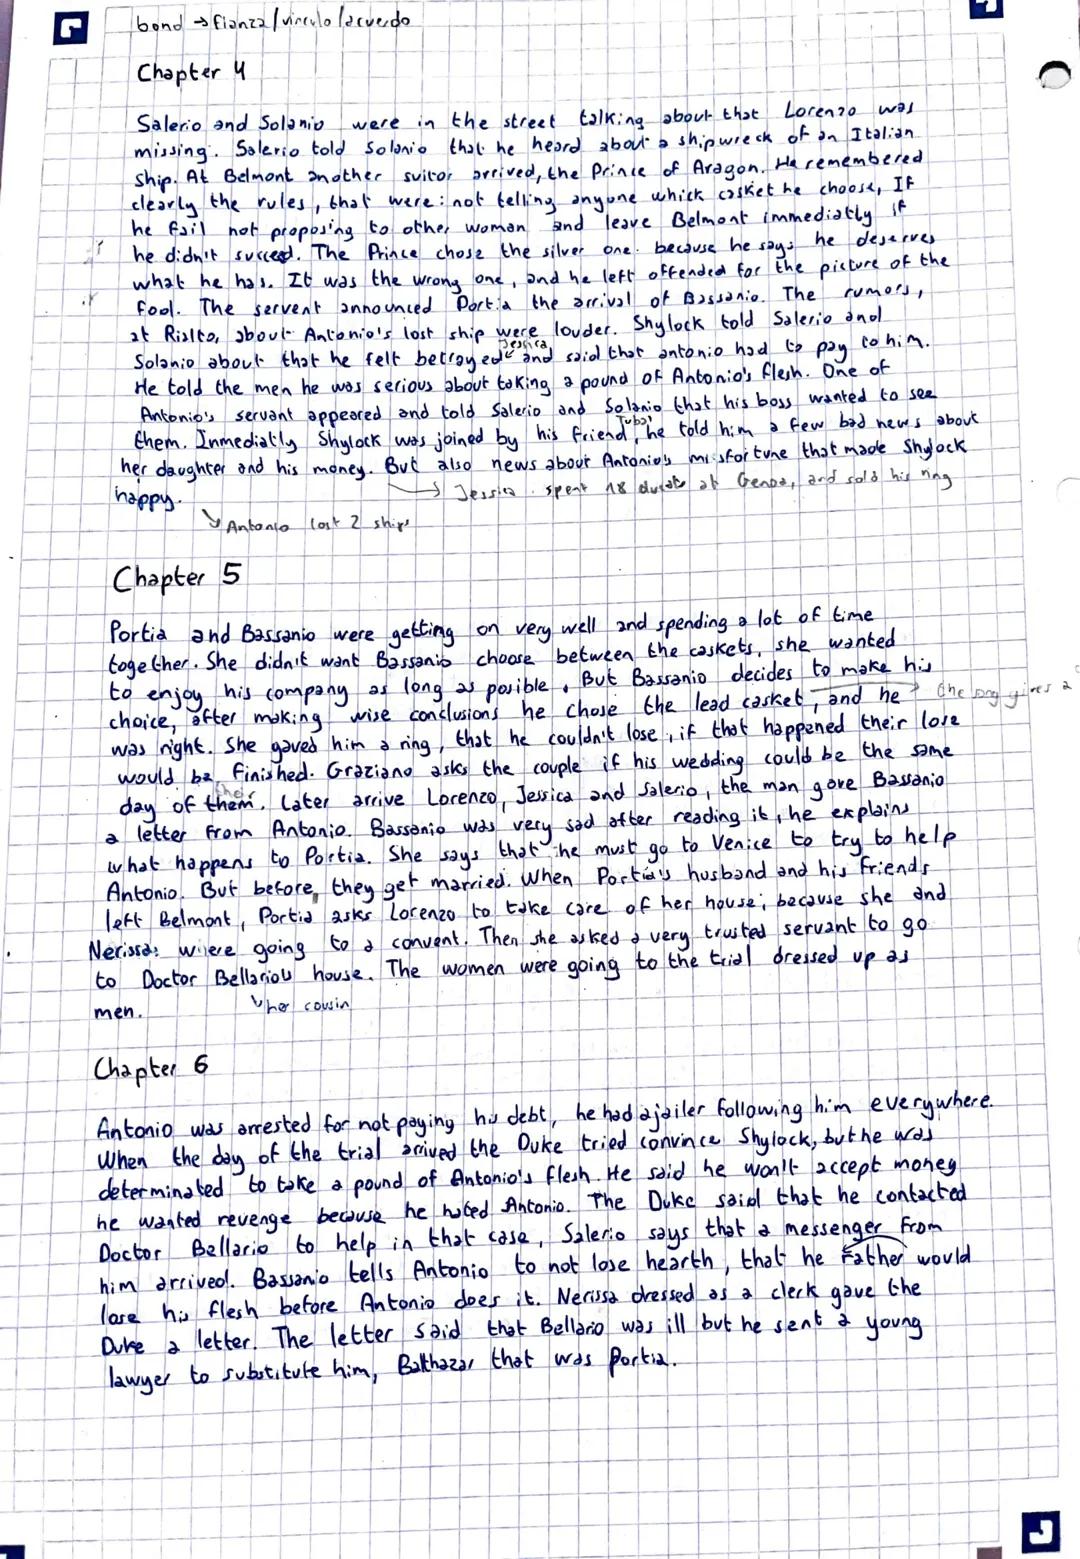 bond → fianza/vinculo/acuerdo
Chapter 4
Salerio and Solanio were in the street talking about that Lorenzo was
missing. Salerio told Solanio that he heard about a shipwreck of an Italian
ship. At Belmont another suitor arrived, the Prince of Aragon. He remembered
clearly the rules, that were: not telling anyone which casket he choose, If
he fail not proposing to other woman and leave Belmont immediatly if
he didn't succeed. The Prince chose the silver one because he says he deserves
what he has. It was the wrong one, and he left offended for the picture of the
fool. The servent announced Portia the arrival of Bassanio. The rumors,
at Rialto, about Antonio's lost ship were louder. Shylock told Salerio and
Jessica
Solanio about that he felt betrayed and said that antonio had to pay to him.
He told the men he was serious about taking a pound of Antonio's flesh. One of
Antonio's servant appeared and told Salerio and Solanio that his boss wanted to see
Tubal
them. Inmediatly Shylock was joined by his friend, he told him a few bad news about
her daughter and his money. But also news about Antonio's misfortune that made Shylock
happy.
→ Jessica spent 18 ducats at Genoa, and sold his ring
Antonio lost 2 ships
Chapter 5
Portia and Bassanio were getting on very well and spending a lot of time
together. She didn't want Bassanio choose between the caskets, she wanted
to enjoy his company as long as posible. But Bassanio decides to make his
choice, after making wise conclusions he chose the lead casket, and he → the song gives a
was right. She gaved him a ring, that he couldn't lose, if that happened their love
would be finished. Graziano asks the couple if his wedding could be the same
day of them. Later arrive Lorenzo, Jessica and Salerio, the man gave Bassanio
a letter from Antonio. Bassanio was very sad after reading it, he explains
what happens to Portia. She says that he must go to Venice to try to help
Antonio. But before, they get married. When Portia's husband and his friends
left Belmont, Portia asks Lorenzo to take care of her house; because she and
Nerissa were going to a convent. Then she asked a very trusted servant to go
to Doctor Bellario's house. The women were going to the trial dressed up as
men.
her cousin
Chapter 6
Antonio was arrested for not paying his debt, he had a jailer following him everywhere.
When the day of the trial arrived the Duke tried convince Shylock, but he was
determinated to take a pound of Antonio's flesh. He said he won't accept money
he wanted revenge because he hated Antonio. The Duke said that he contacted
Doctor Bellario to help in that case, Salerio says that a messenger from
him arrived. Bassanio tells Antonio to not lose hearth, that he rather would
lose his flesh before Antonio does it. Nerissa dressed as a clerk gave the
Duke a letter. The letter said that Bellario was ill but he sent a young
lawyer to substitute him, Balthazar that was Portia.